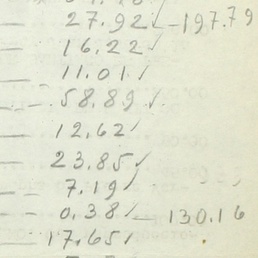 27.92✓—197.79
— 16.22✓
— 11.01✓
— 58.89✓
— 12.62✓
— 23.85✓
— 7.19✓
— 0.38✓— 130.16
— 17.65✓